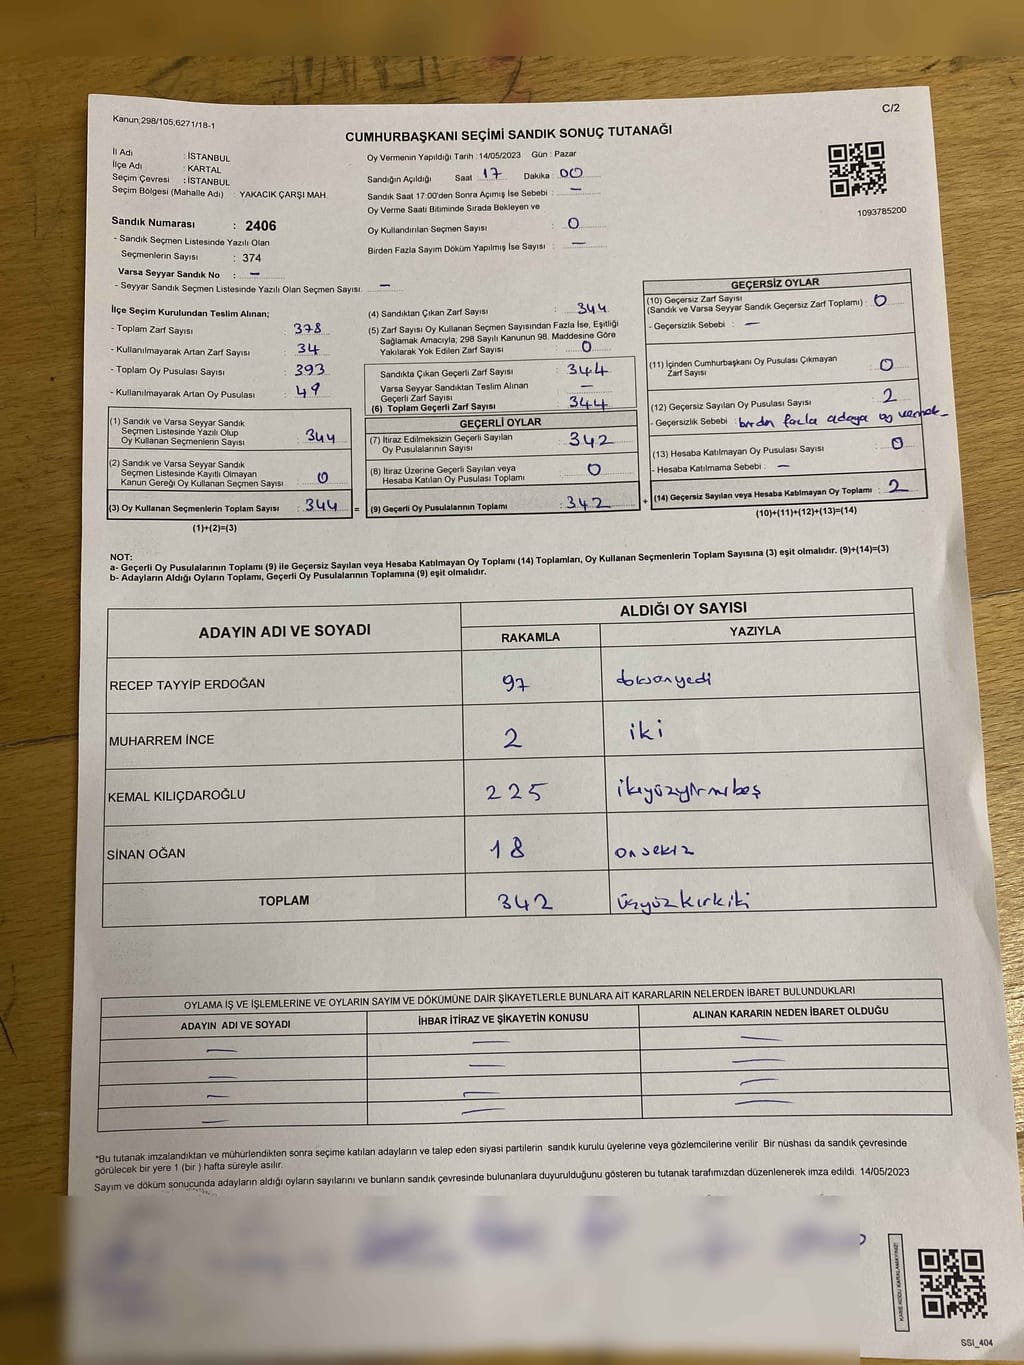 C/2
Kanun;298/105,6271/18-1
CUMHURBAŞKANI SEÇİMİ SANDIK SONUÇ TUTANAĞI
1093785200
İl Adı : İSTANBUL
İlçe Adı : KARTAL
Seçim Çevresi : İSTANBUL
Seçim Bölgesi (Mahalle Adı) : YAKACIK ÇARŞI MAH.
Sandık Numarası : 2406
- Sandık Seçmen Listesinde Yazılı Olan
Seçmenlerin Sayısı : 374
Varsa Seyyar Sandık No : –
- Seyyar Sandık Seçmen Listesinde Yazılı Olan Seçmen Sayısı: –
Oy Vermenin Yapıldığı Tarih : 14/05/2023 Gün : Pazar
Sandığın Açıldığı Saat 17 Dakika : 00
Sandık Saat 17:00'den Sonra Açımış İse Sebebi : –
Oy Verme Saati Bitiminde Sırada Bekleyen ve
Oy Kullandırılan Seçmen Sayısı : 0
Birden Fazla Sayım Döküm Yapılmış İse Sayısı : –
İlçe Seçim Kurulundan Teslim Alınan;
- Toplam Zarf Sayısı : 378
- Kullanılmayarak Artan Zarf Sayısı : 34
- Toplam Oy Pusulası Sayısı : 393
- Kullanılmayarak Artan Oy Pusulası : 49
(1) Sandık ve Varsa Seyyar Sandık
Seçmen Listesinde Yazılı Olup
Oy Kullanan Seçmenlerin Sayısı : 344
(2) Sandık ve Varsa Seyyar Sandık
Seçmen Listesinde Kayıtlı Olmayan
Kanun Gereği Oy Kullanan Seçmen Sayısı : 0
(3) Oy Kullanan Seçmenlerin Toplam Sayısı : 344 =
(1)+(2)=(3)
(4) Sandıktan Çıkan Zarf Sayısı : 344
(5) Zarf Sayısı Oy Kullanan Seçmen Sayısından Fazla İse, Eşitliği
Sağlamak Amacıyla; 298 Sayılı Kanunun 98. Maddesine Göre
Yakılarak Yok Edilen Zarf Sayısı : 0
Sandıkta Çıkan Geçerli Zarf Sayısı : 344
Varsa Seyyar Sandıktan Teslim Alınan
Geçerli Zarf Sayısı : –
(6) Toplam Geçerli Zarf Sayısı : 344
GEÇERLİ OYLAR
(7) İtiraz Edilmeksizin Geçerli Sayılan
Oy Pusulalarının Sayısı : 342
(8) İtiraz Üzerine Geçerli Sayılan veya
Hesaba Katılan Oy Pusulası Toplamı : 0
(9) Geçerli Oy Pusulalarının Toplamı : 342 +
GEÇERSİZ OYLAR
(10) Geçersiz Zarf Sayısı
(Sandık ve Varsa Seyyar Sandık Geçersiz Zarf Toplamı) : 0
- Geçersizlik Sebebi : –
(11) İçinden Cumhurbaşkanı Oy Pusulası Çıkmayan
Zarf Sayısı : 0
(12) Geçersiz Sayılan Oy Pusulası Sayısı : 2
- Geçersizlik Sebebi : birden fazla adaya oy vermek
(13) Hesaba Katılmayan Oy Pusulası Sayısı : 0
- Hesaba Katılmama Sebebi : –
(14) Geçersiz Sayılan veya Hesaba Katılmayan Oy Toplamı : 2
(10)+(11)+(12)+(13)=(14)
NOT:
a- Geçerli Oy Pusulalarının Toplamı (9) ile Geçersiz Sayılan veya Hesaba Katılmayan Oy Toplamı (14) Toplamları, Oy Kullanan Seçmenlerin Toplam Sayısına (3) eşit olmalıdır. (9)+(14)=(3)
b- Adayların Aldığı Oyların Toplamı, Geçerli Oy Pusulalarının Toplamına (9) eşit olmalıdır.
ADAYIN ADI VE SOYADI ALDIĞI OY SAYISI
RAKAMLA YAZIYLA
RECEP TAYYİP ERDOĞAN 97 doksanyedi
MUHARREM İNCE 2 iki
KEMAL KILIÇDAROĞLU 225 ikiyüzyirmibeş
SİNAN OĞAN 18 onsekiz
TOPLAM 342 üçyüzkırkiki
OYLAMA İŞ VE İŞLEMLERİNE VE OYLARIN SAYIM VE DÖKÜMÜNE DAİR ŞİKAYETLERLE BUNLARA AİT KARARLARIN NELERDEN İBARET BULUNDUKLARI
ADAYIN ADI VE SOYADI İHBAR İTİRAZ VE ŞİKAYETİN KONUSU ALINAN KARARIN NEDEN İBARET OLDUĞU
– – –
– – –
– – –
– – –
*Bu tutanak imzalandıktan ve mühürlendikten sonra seçime katılan adayların ve talep eden siyasi partilerin sandık kurulu üyelerine veya gözlemcilerine verilir. Bir nüshası da sandık çevresinde
görülecek bir yere 1 (bir ) hafta süreyle asılır.
Sayım ve döküm sonucunda adayların aldığı oyların sayılarını ve bunların sandık çevresinde bulunanlara duyurulduğunu gösteren bu tutanak tarafımızdan düzenlenerek imza edildi. 14/05/2023
KARE KODU KARALAMAYINIZ!
SSI_404